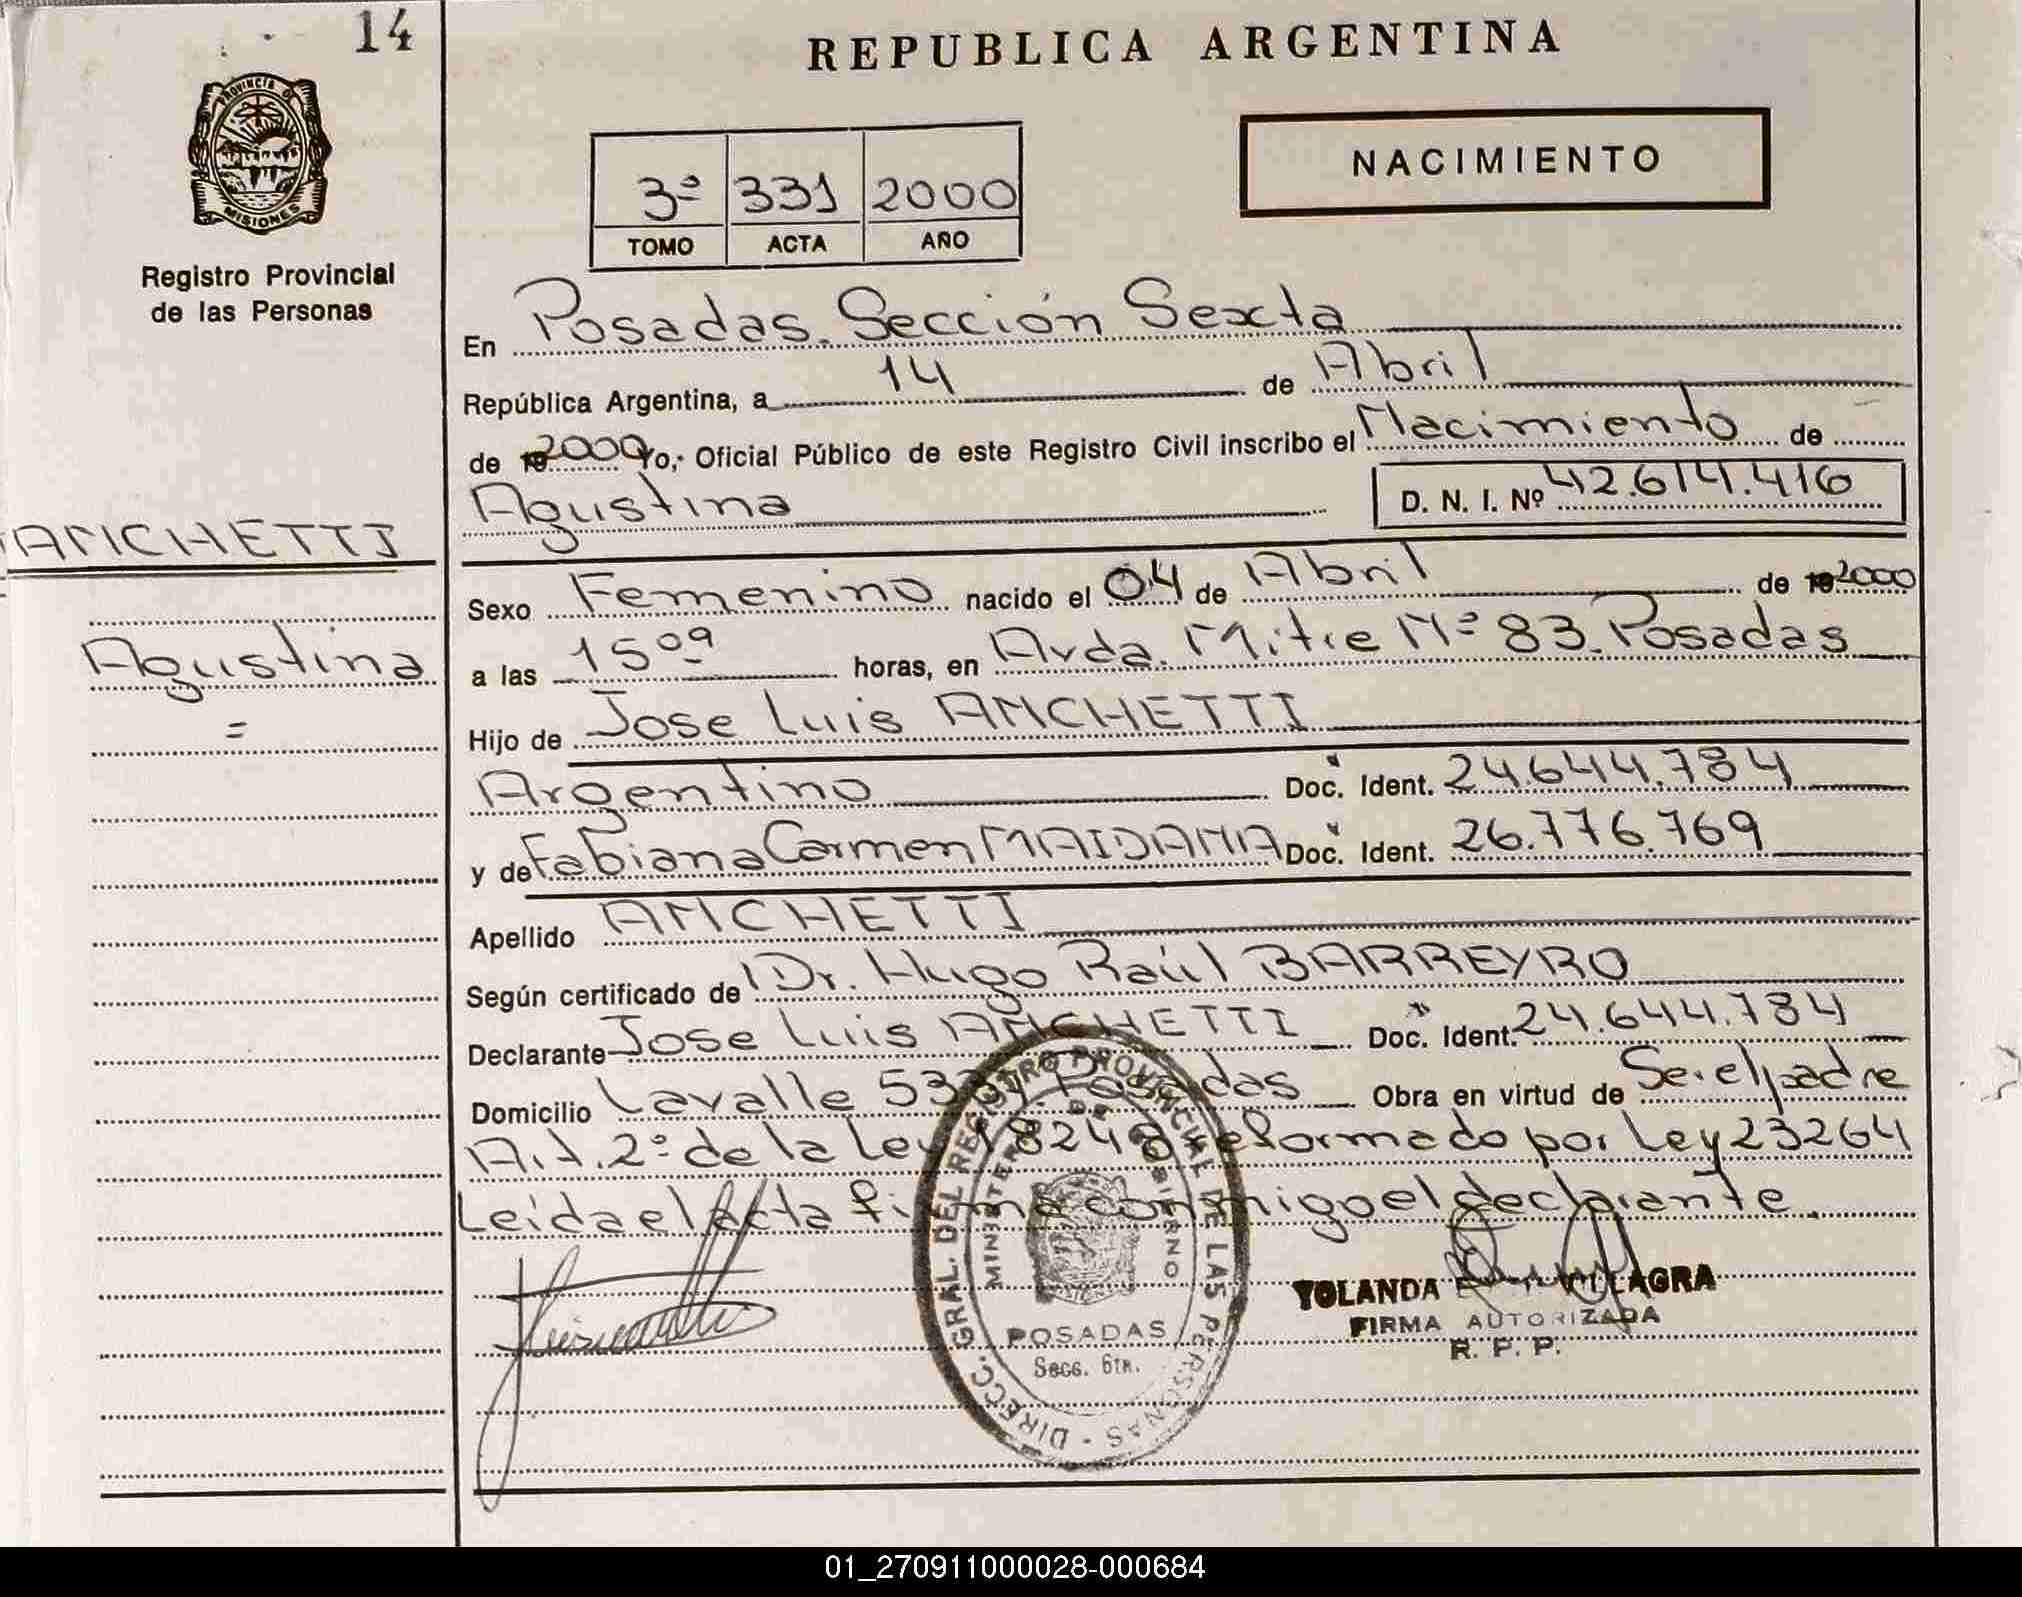 14
REPUBLICA ARGENTINA
PROVINCIA DE
MISIONES
Registro Provincial
de las Personas
3ª 331 2000
TOMO ACTA AÑO
NACIMIENTO
En Posadas. Sección Sexta
República Argentina, a 14 de Abril
de 19 2000 Yo, Oficial Público de este Registro Civil inscribo el Nacimiento de
Agustina D. N. I. Nº 42.614.416
ANCHETTI
Agustina
=
Sexo Femenino nacido el 04 de Abril de 19 2000
a las 15 09 horas, en Avda. Mitre Nº 83. Posadas
Hijo de Jose Luis ANCHETTI
Argentino Doc. Ident. 24.644.784
y de Fabiana Carmen MAIDANA Doc. Ident. 26.776.769
Apellido ANCHETTI
Según certificado de Dr. Hugo Raúl BARREYRO
Declarante Jose Luis ANCHETTI Doc. Ident. 24.644.784
Domicilio Lavalle Posadas Obra en virtud de Ser el padre
Art. 2º de la Ley 18248 reformado por Ley 23264
Leída el acta firma conmigo el declarante.
DIRECC. GRAL. DEL REGISTRO PROVINCIAL DE LAS PERSONAS
MINISTERIO DE GOBIERNO
POSADAS
Secc. 6ta.
YOLANDA VILLAGRA
FIRMA AUTORIZADA
R. P. P.
01_270911000028-000684